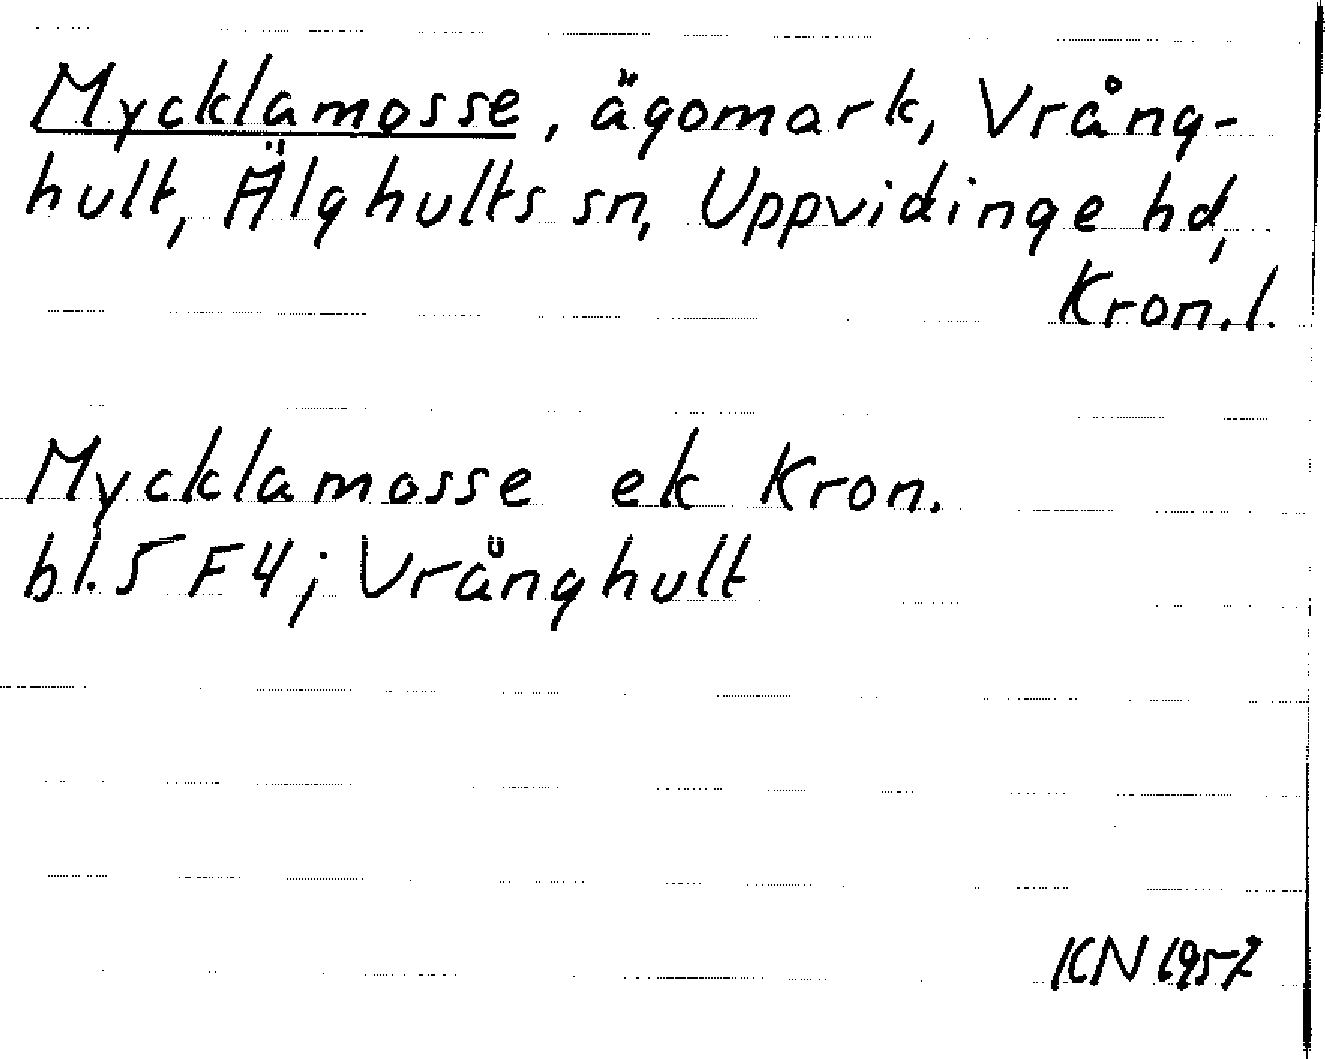 Mycklamosse, ägomark, Vrång-
hult, Älghults sn, Uppvidinge hd,
Kron.l.
Mycklamosse ek Kron.
bl. 5 F4; Vrånghult
KN 1957